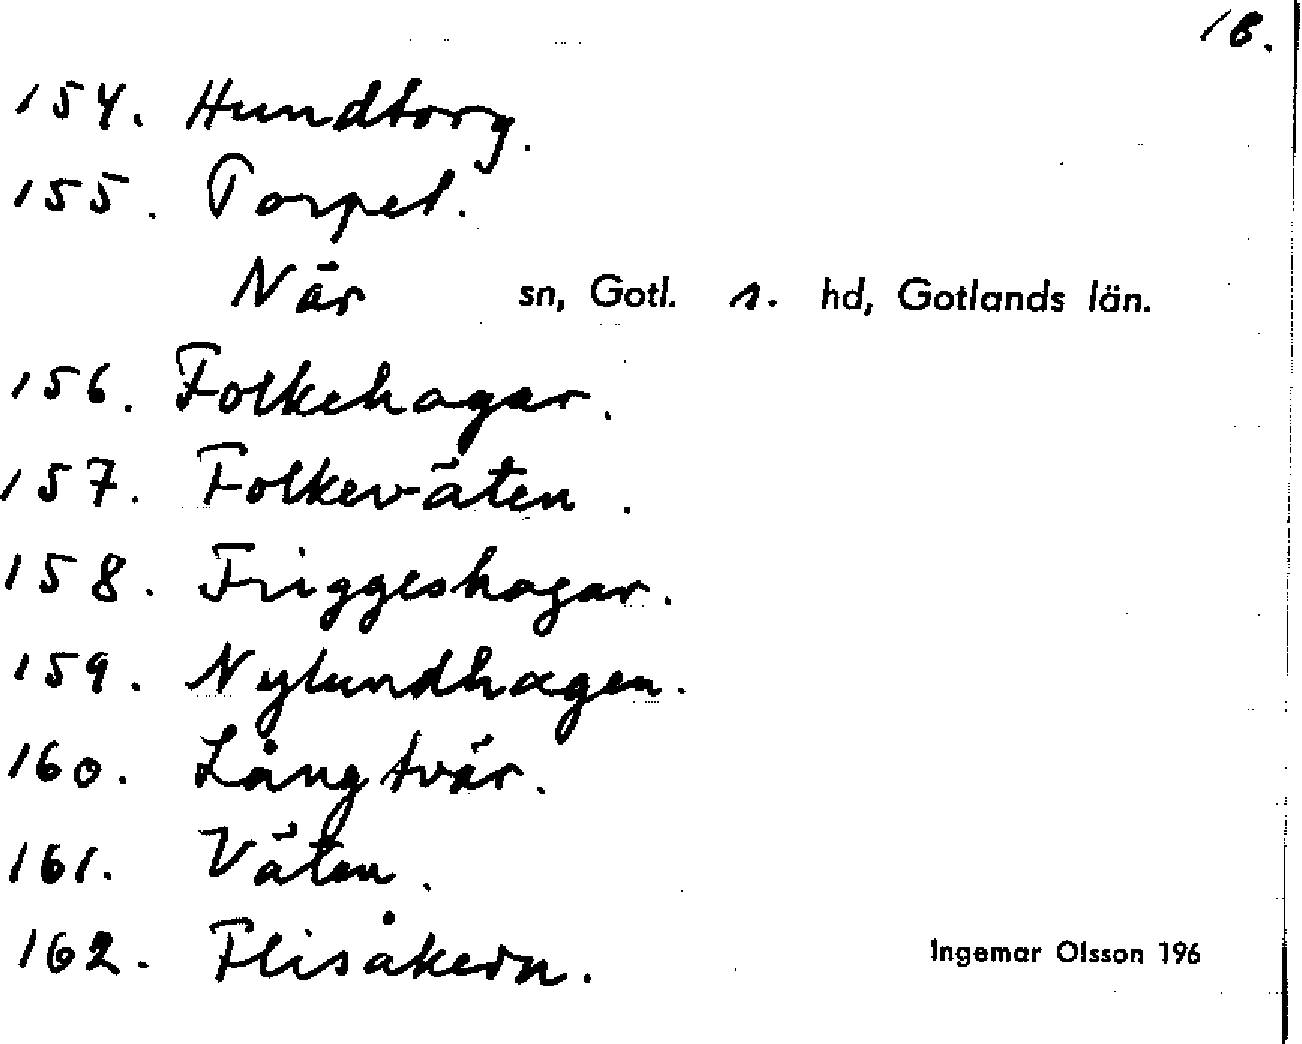 18.
154. Hundtorg.
155. Torpet.
När sn, Gotl. s. hd, Gotlands län.
156. Folkehagar.
157. Folkeväten.
158. Friggeshagar.
159. Nylundhagen.
160. Långtvär.
161. Väten.
162. Flisåkern.
Ingemar Olsson 196